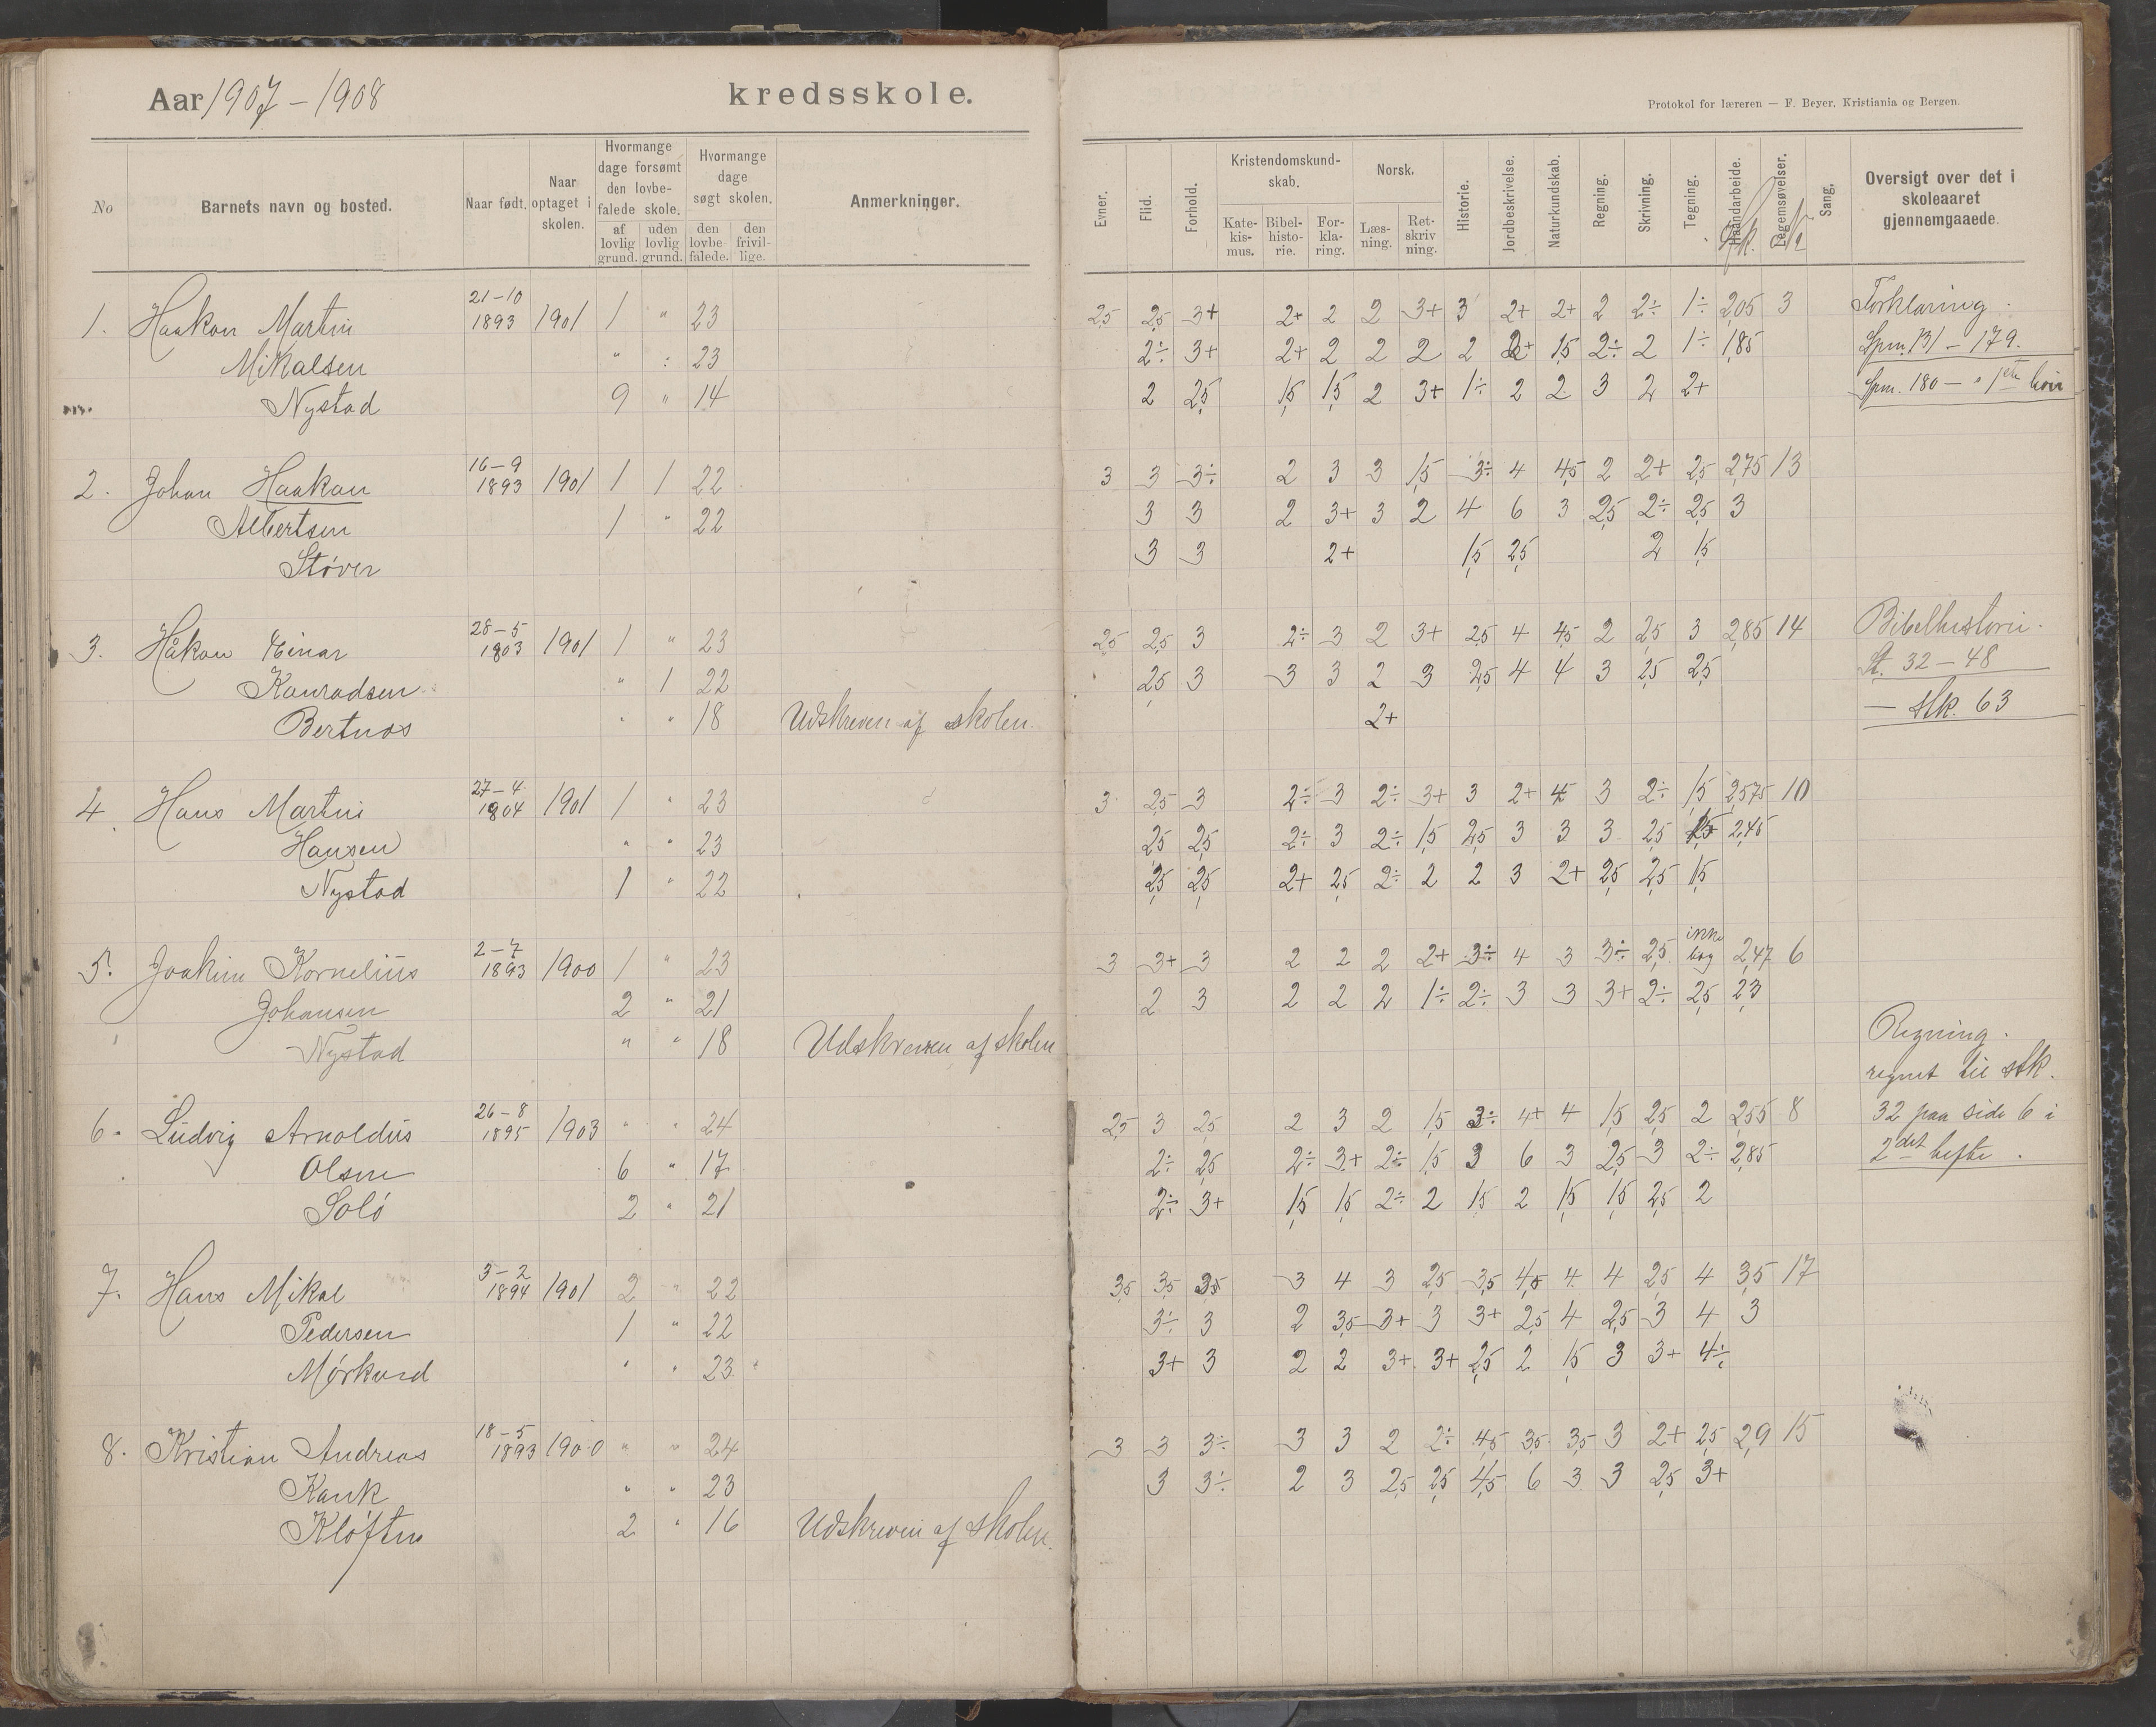 Aar 1907 – 1908 kredsskole.
Protokol for læreren — F. Beyer, Kristiania og Bergen.
No Barnets navn og bosted. Naar født. Naar optaget i skolen. Hvormange dage forsømt den lovbefalede skole. af lovlig grund. uden lovlig grund. Hvormange dage søgt skolen. den lovbefalede. den frivillige. Anmerkninger.
Evner. Flid. Forhold. Kristendomskundskab. Katekismus. Bibelhistorie. Forklaring. Norsk. Læsning. Retskrivning. Historie. Jordbeskrivelse. Naturkundskab. Regning. Skrivning. Tegning. Haandarbeide. Legemsøvelser. Sang. Oversigt over det i skoleaaret gjennemgaaede.
21–10
1. Haakon Martin 1893 1901 1 " 23 2,5 2,5 3+ 2+ 2 2 3+ 3 2+ 2+ 2 2÷ 1÷ 2,05 3 Forklaring.
Mikalsen " : 23 2÷ 3+ 2+ 2 2 2 2 2+ 1,5 2÷ 2 1÷ 1,85 Spm. 131 – 179.
Nystad 9 " 14 2 2,5 1,5 1,5 2 3+ 1÷ 2 2 3 2 2+ Spm. 180 –
16–9
2. Johan Haakon 1893 1901 1 1 22 3 3 3÷ 2 3 3 1,5 3÷ 4 4,5 2 2+ 2,5 2,75 13
Albertsen 1 " 22 3 3 2 3+ 3 2 4 6 3 2,5 2÷ 2,5 3
Støver 3 3 2+ 1,5 2,5 2 1,5
28–5
3. Håkon Einar 1903 1901 1 " 23 2,5 2,5 3 2÷ 3 2 3+ 2,5 4 4,5 2 2,5 3 2,85 14 Bibelhistorie.
Konradsen " 1 22 2,5 3 3 3 2 3 2,5 4 4 3 2,5 2,5 St. 32 – 48
Bertnos " " 18 Udskreven af skolen. 2+ — stk. 63
27–4
4. Hans Martin 1904 1901 1 " 23 3 2,5 3 2÷ 3 2÷ 3+ 3 2+ 4,5 3 2÷ 1,5 2,575 10
Hansen " " 23 2,5 2,5 2÷ 3 2÷ 1,5 2,5 3 3 3 2,5 2,5 2,45
Nystad 1 " 22 2,5 2,5 2+ 2,5 2÷ 2 2 3 2+ 2,5 2,5 1,5
2–7
5. Joakim Kornelius 1893 1900 1 " 23 3 3+ 3 2 2 2 2+ 3÷ 4 3 3÷ 2,5 ikke bog 2,47 6
Johansen 2 " 21 2 3 2 2 2 1÷ 2÷ 3 3 3+ 2÷ 2,5 2,3
Nystad " " 18 Udskreven af skolen Regning.
regnet til stk.
26–8
6. Ludvig Arnoldus 1895 1903 " " 24 2,5 3 2,5 2 3 2 1,5 3÷ 4+ 4 1,5 2,5 2 2,55 8 32 paa side 6 i
Olsen 6 " 17 2÷ 2,5 2÷ 3+ 2÷ 1,5 3 6 3 2,5 3 2÷ 2,85 2det hefte.
Solø 2 " 21 2÷ 3+ 1,5 1,5 2÷ 2 1,5 2 1,5 1,5 2,5 2
3–2
7. Hans Mikal 1894 1901 2 " 22 3,5 3,5 3,5 3 4 3 2,5 3,5 4,5 4 4 2,5 4 3,5 17
Pedersen 1 " 22 3÷ 3 2 3,5 3+ 3 3+ 2,5 4 2,5 3 4 3
Mørkved " " 23 3+ 3 2 2 3+ 3+ 2,5 2 1,5 3 3+ 4÷
18–5
8. Kristian Andreas 1893 1900 " " 24 3 3 3÷ 3 3 2 2÷ 4,5 3,5 3,5 3 2+ 2,5 2,9 15
Kank " " 23 3 3÷ 2 3 2,5 2,5 4,5 6 3 3 2,5 3+
Kløften 2 " 16 Udskreven af skolen.